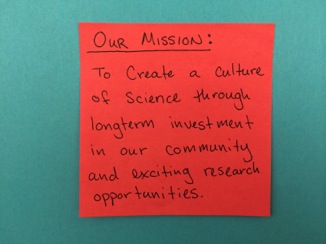 OUR MISSION:
To Create a culture
of Science through
longterm investment
in our community
and exciting research
opportunities.